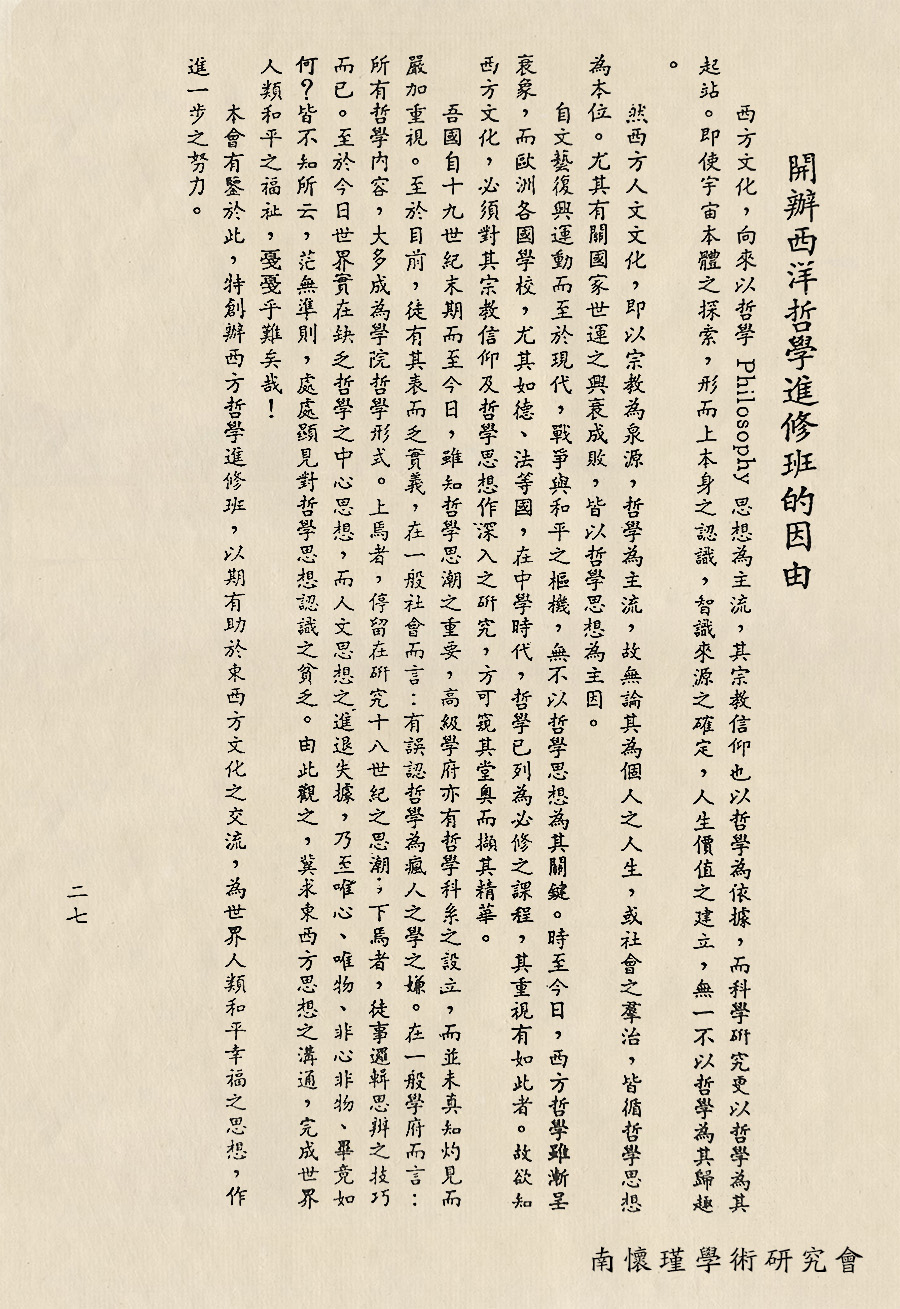 開辦西洋哲學進修班的因由
西方文化，向來以哲學 Philosophy 思想為主流，其宗教信仰也以哲學為依據，而科學研究更以哲學為其
起站。即使宇宙本體之探索，形而上本身之認識，智識來源之確定，人生價值之建立，無一不以哲學為其歸趣
。
然西方人文文化，即以宗教為泉源，哲學為主流，故無論其為個人之人生，或社會之羣治，皆循哲學思想
為本位。尤其有關國家世運之興衰成敗，皆以哲學思想為主因。
自文藝復興運動而至於現代，戰爭與和平之樞機，無不以哲學思想為其關鍵。時至今日，西方哲學雖漸呈
衰象，而歐洲各國學校，尤其如德、法等國，在中學時代，哲學已列為必修之課程，其重視有如此者。故欲知
西方文化，必須對其宗教信仰及哲學思想作深入之研究，方可窺其堂奧而擷其精華。
吾國自十九世紀末期而至今日，雖知哲學思潮之重要，高級學府亦有哲學科系之設立，而並未真知灼見而
嚴加重視。至於目前，徒有其表而乏實義，在一般社會而言：有誤認哲學為瘋人之學之嫌。在一般學府而言：
所有哲學內容，大多成為學院哲學形式。上焉者，停留在研究十八世紀之思潮；下焉者，徒事邏輯思辯之技巧
而已。至於今日世界實在缺乏哲學之中心思想，而人文思想之進退失據，乃至唯心、唯物、非心非物、畢竟如
何？皆不知所云，茫無準則，處處顯見對哲學思想認識之貧乏。由此觀之，冀求東西方思想之溝通，完成世界
人類和平之福祉，戞戞乎難矣哉！
本會有鑒於此，特創辦西方哲學進修班，以期有助於東西方文化之交流，為世界人類和平幸福之思想，作
進一步之努力。
二七
南懷瑾學術研究會